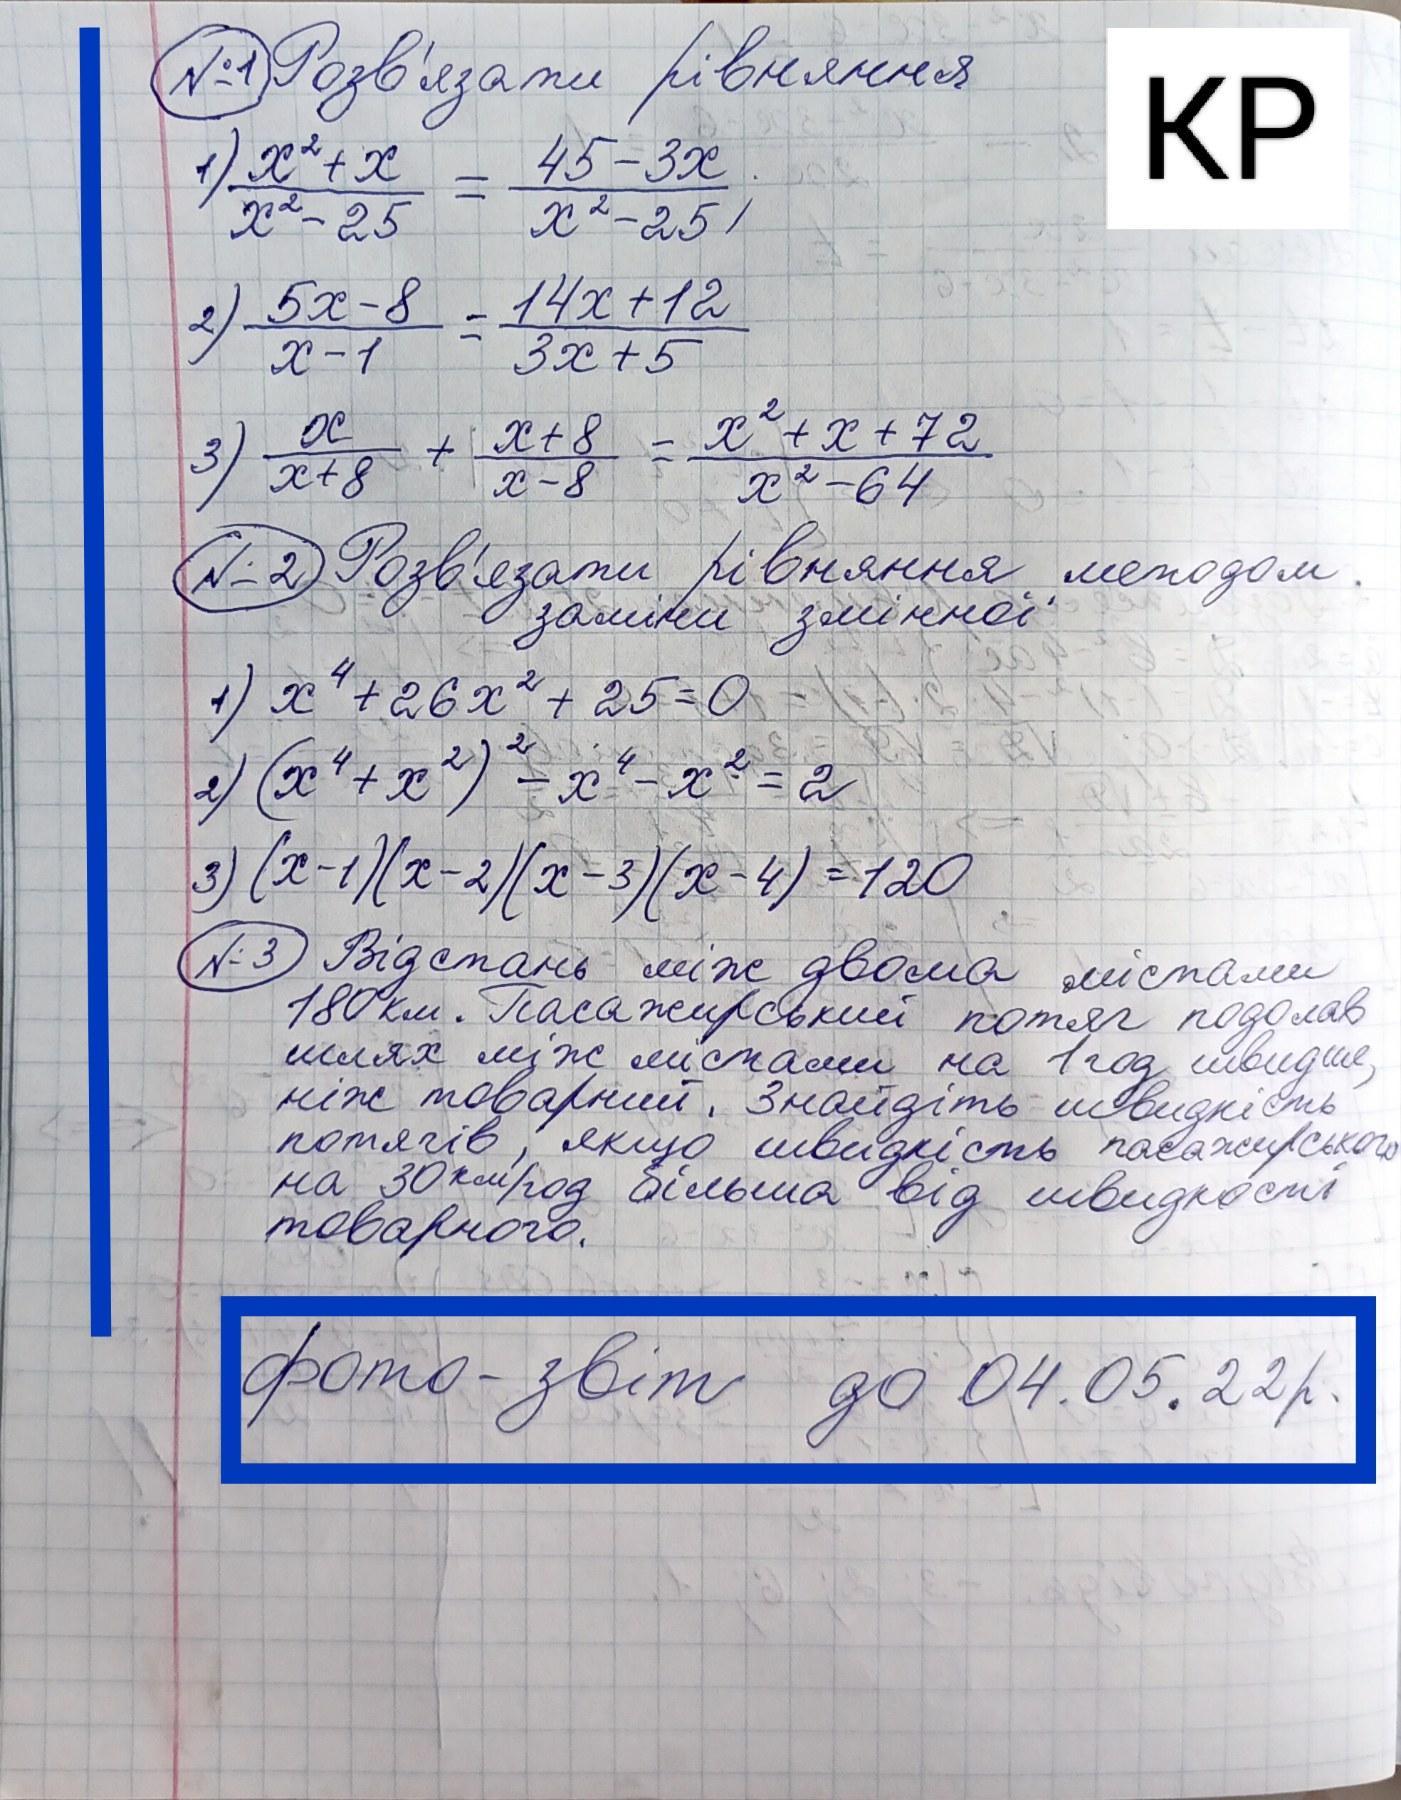 КР
№1 Розв'язати рівняння
1) x²+x / x²-25 = 45-3x / x²-25
2) 5x-8 / x-1 = 14x+12 / 3x+5
3) x / x+8 + x+8 / x-8 = x²+x+72 / x²-64
№2 Розв'язати рівняння методом
заміни змінної
1) x⁴+26x²+25=0
2) (x⁴+x²)²-x⁴-x²=2
3) (x-1)(x-2)(x-3)(x-4)=120
№3 Відстань між двома містами
180км. Пасажирський потяг подолав
шлях між містами на 1год швидше,
ніж товарний. Знайдіть швидкість
потягів, якщо швидкість пасажирського
на 30км/год більша від швидкості
товарного.
фото-звіт до 04.05.22р.